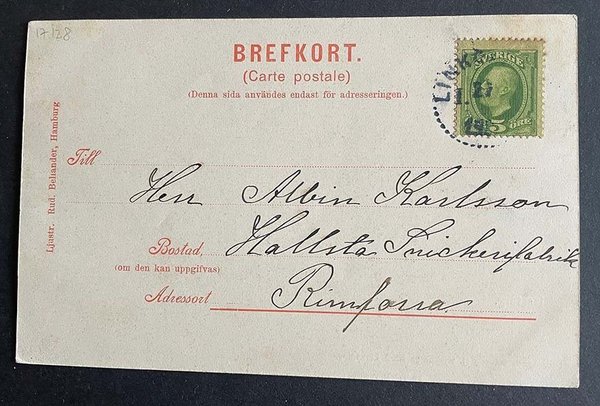 17/28
BREFKORT.
(Carte postale)
(Denna sida användes endast för adresseringen.)
SVERIGE
5 ÖRE
LINK
Till
Herr Albin Karlsson
Bostad, Hallsta Snickerifabrik
(om den kan uppgifvas)
Adressort Rimforsa
Ljustr. Rud. Beliander, Hamburg